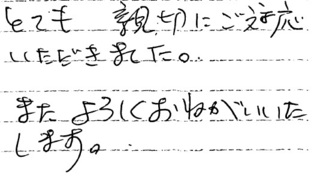 とても 親切にご対応
いただきました。
また よろしくおねがいいた
します。